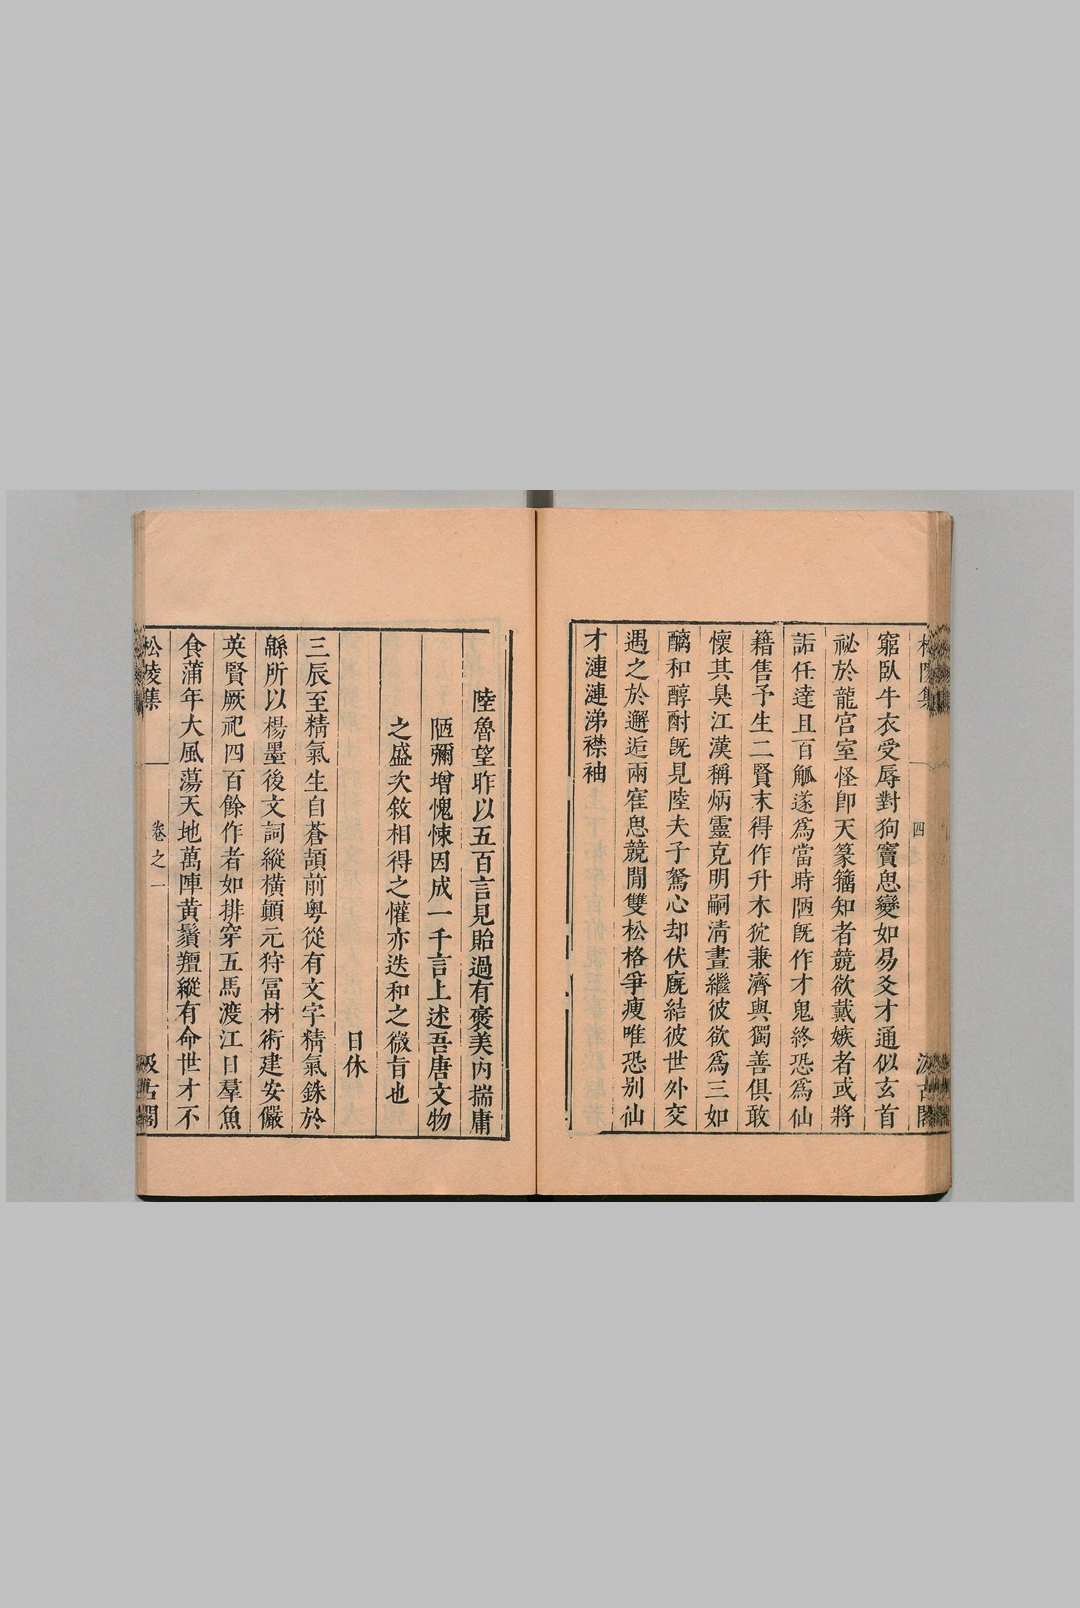 窮臥牛衣受辱對狗竇思變如易爻才通似玄首
祕於龍宮室怪卽天篆籀知者競欲戴嫉者或將
詬任達且百觚遂爲當時陋旣作才鬼終恐爲仙
籍售予生二賢末得作升木狖兼濟與獨善俱敢
懷其臭江漢稱炳靈克明嗣淸晝繼彼欲爲三如
醨和醇酎旣見陸夫子駑心却伏廐結彼世外交
遇之於邂逅兩隺思競閒雙松格爭瘦唯恐别仙
才漣漣涕襟袖
陸魯望昨以五百言見貽過有襃美內揣庸
陋彌增愧悚因成一千言上述吾唐文物
之盛次敘相得之懽亦迭和之微旨也
日休
三辰至精氣生自蒼頡前粤從有文字精氣銖於
緜所以楊墨後文詞縱橫顚元狩冨材術建安儼
英賢厥祀四百餘作者如排穿五馬渡江日羣魚
食蒲年大風蕩天地萬陣黃鬚羶縱有命世才不
松陵集
卷之一
四
汲古閣